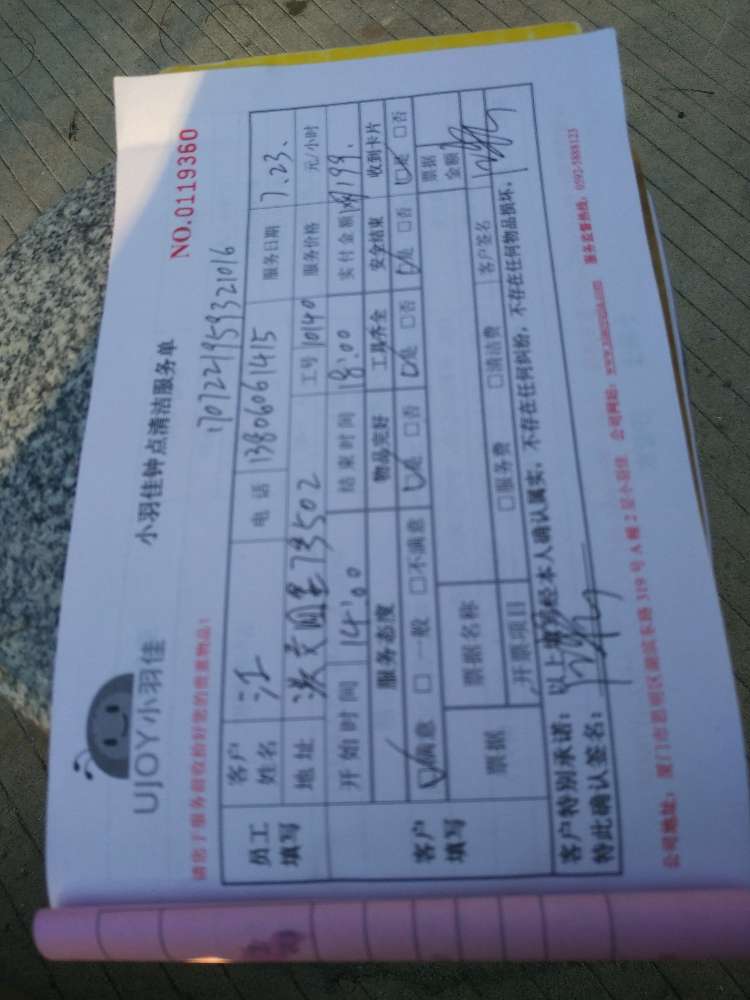 UJOY小羽佳
小羽佳钟点清洁服务单
NO.0119360
请您于服务前收拾好您的贵重物品!
1707221959321016
员工填写
客户姓名 江 电话 13806061415 服务日期 7.23.
地址 73502 工号 10140 服务价格 元/小时
开始时间 14:00 结束时间 18:00 实付金额 199.
客户填写
服务态度 物品完好 工具齐全 安全结束 收到卡片
☑满意 □一般 □不满意 ☑是 □否 ☑是 □否 ☑是 □否 ☑是 □否
票据 票据名称 票据金额
开票项目 □服务费 □清洁费 客户签名
客户特别承诺: 以上填写经本人确认属实, 不存在任何纠纷, 不存在任何物品损坏,
特此确认签名:
公司地址: 厦门市思明区湖滨东路 319 号 A 幢 2 层小羽佳 公司网站: 服务监督热线: 0592-5888123